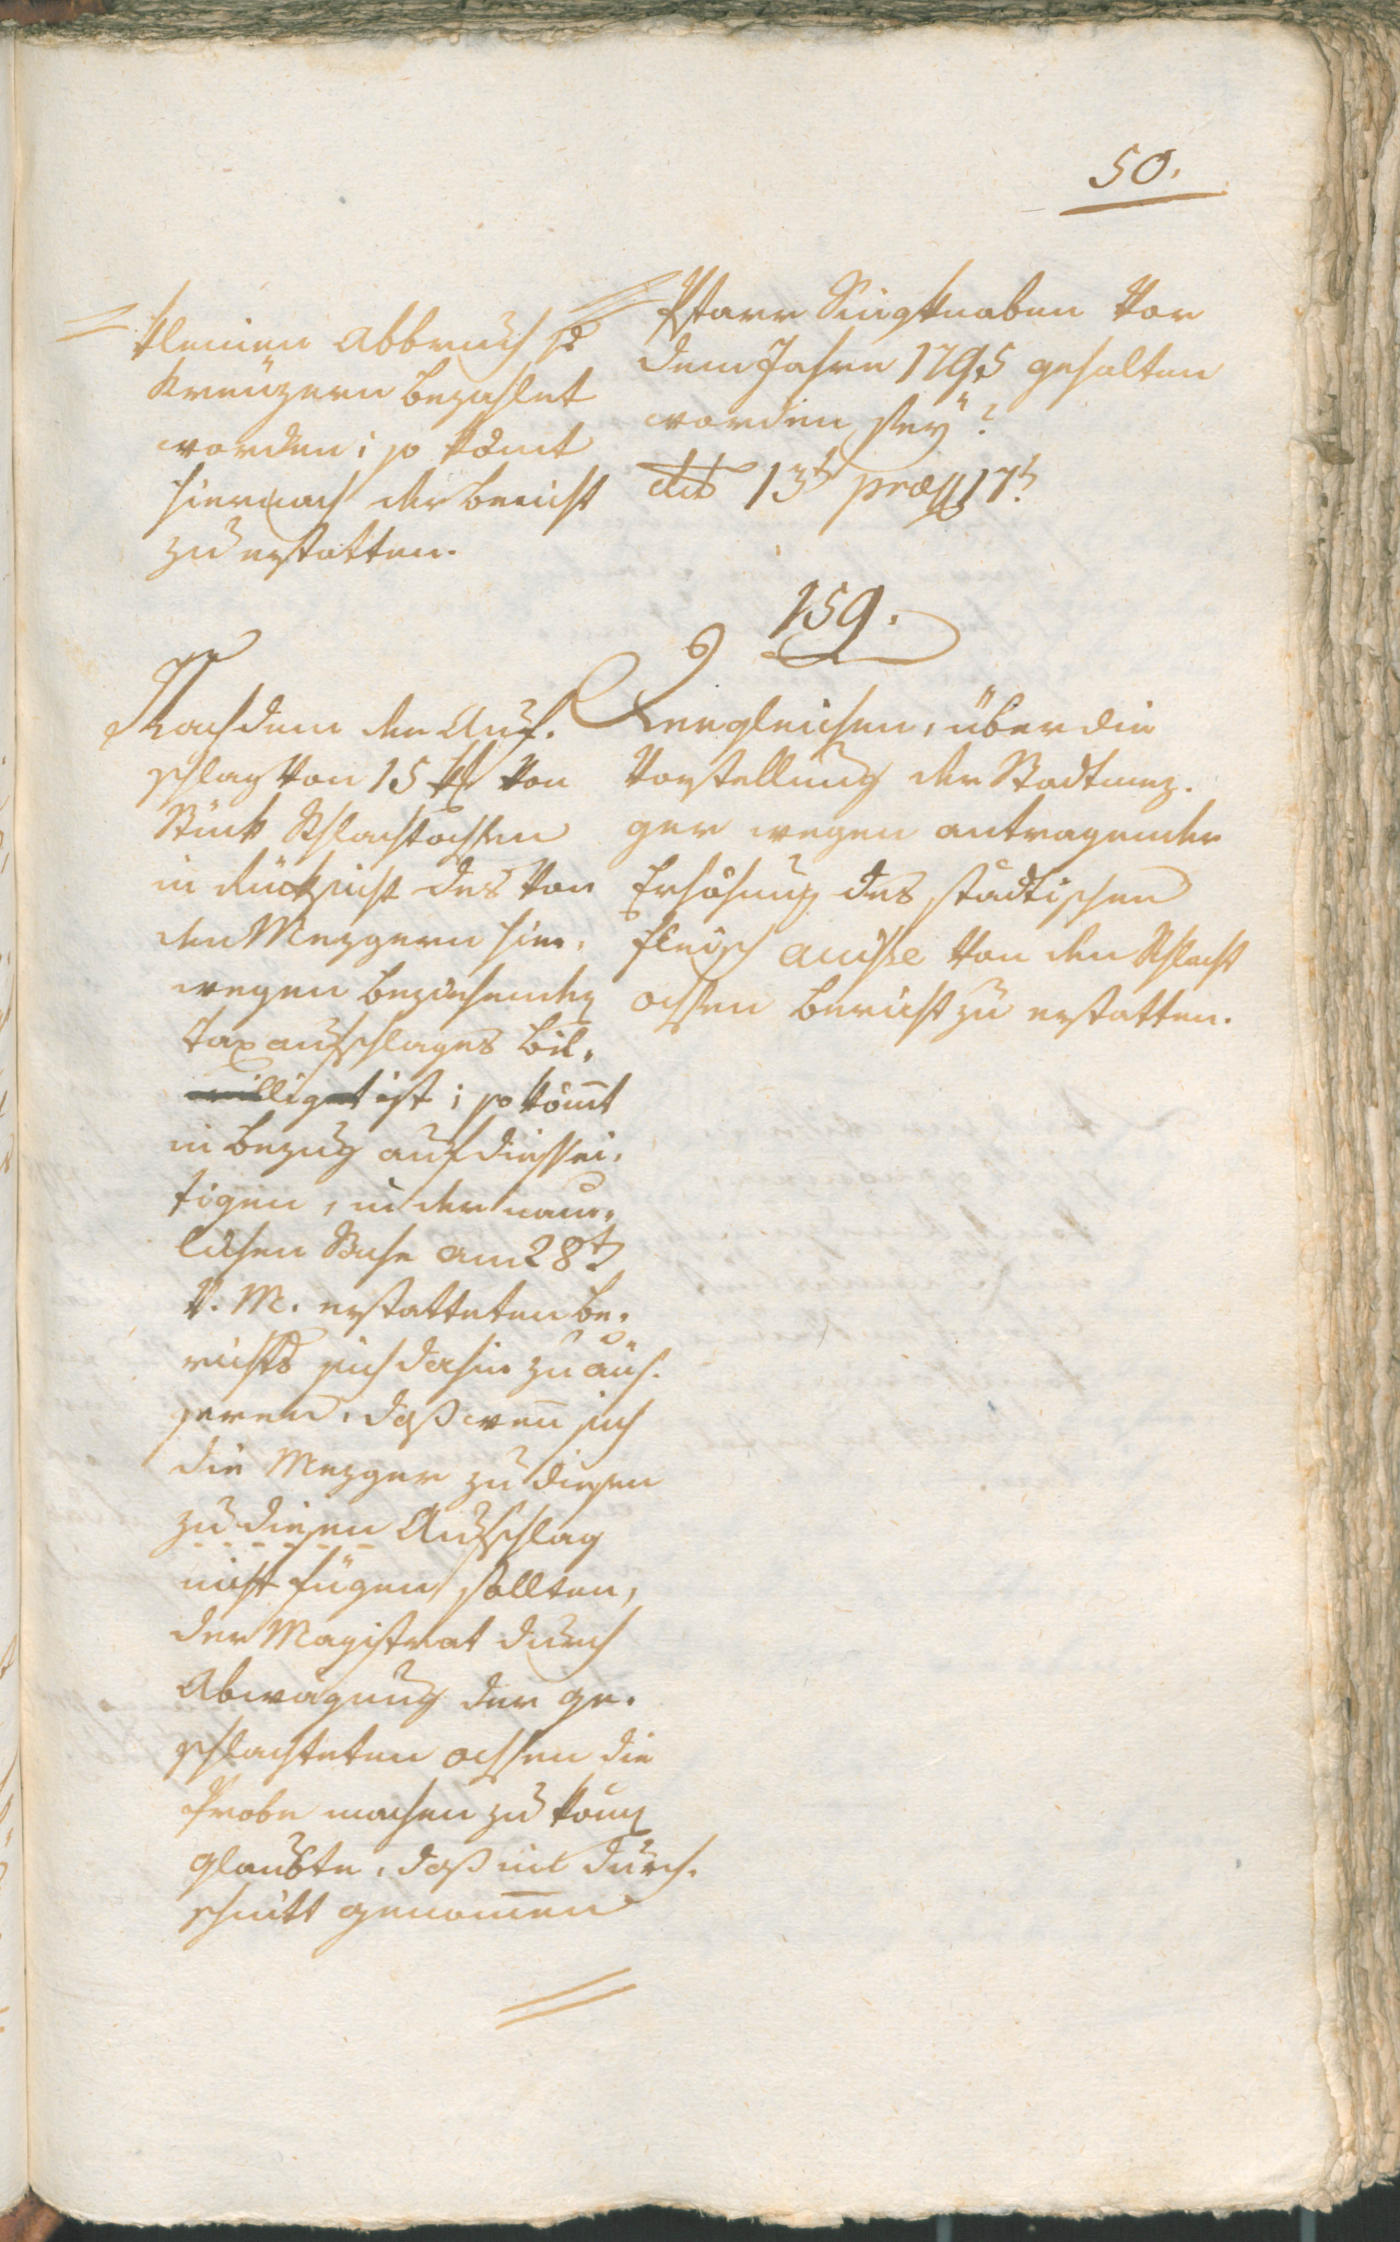 50.
kleinen Abbruch pr
Kreuzern bezahlet
worden; so kömt
hiernach der Bericht
zu erstatten.
Pfarr Singknaben vor
dem Jahre 1795 gehalten
worden seÿ?
ddo 13t praes 17t
159.
Nachdem der Auf-
schlag von 15 Xr von
Stück Schlachtochsen
in Rücksicht des von
den Mezgern hier-
wegen beziehenden
Taxaufschlages bil-
ligt ist; so kömmt
in Bezug auf diessei-
tigen, in der näm-
lichen Sache am 28t
v. M. erstatteten Be-
richts sich dahin zu äus-
seren, daß wenn sich
die Mezger zu diesen
zu diesen Aufschlag
nicht fügen sollten,
der Magistrat durch
Abwägung der ge-
schlachteten Ochsen die
Probe machen zu können
glaubte, daß im Durch-
schnitt genommen
Dergleichen, über die
Vorstellung der Stadtmez-
ger wegen antragender
Erhöhung des städtischen
Fleisch accisse von den Schlacht
ochsen Bericht zu erstatten.